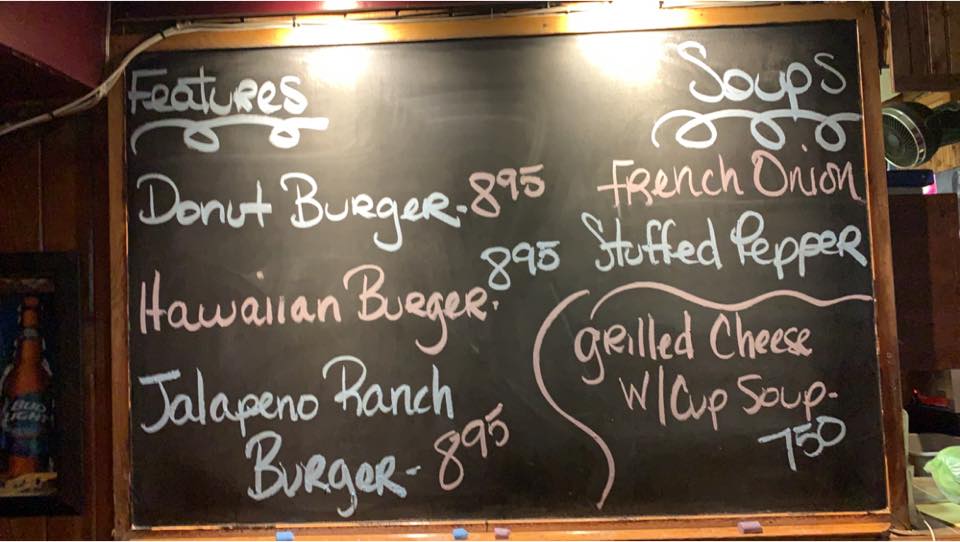 Features
Donut Burger - 895
Hawaiian Burger - 895
Jalapeno Ranch
Burger - 895
Soups
French Onion
Stuffed Pepper
Grilled Cheese
W/ Cup Soup -
750
BUD
LIGHT